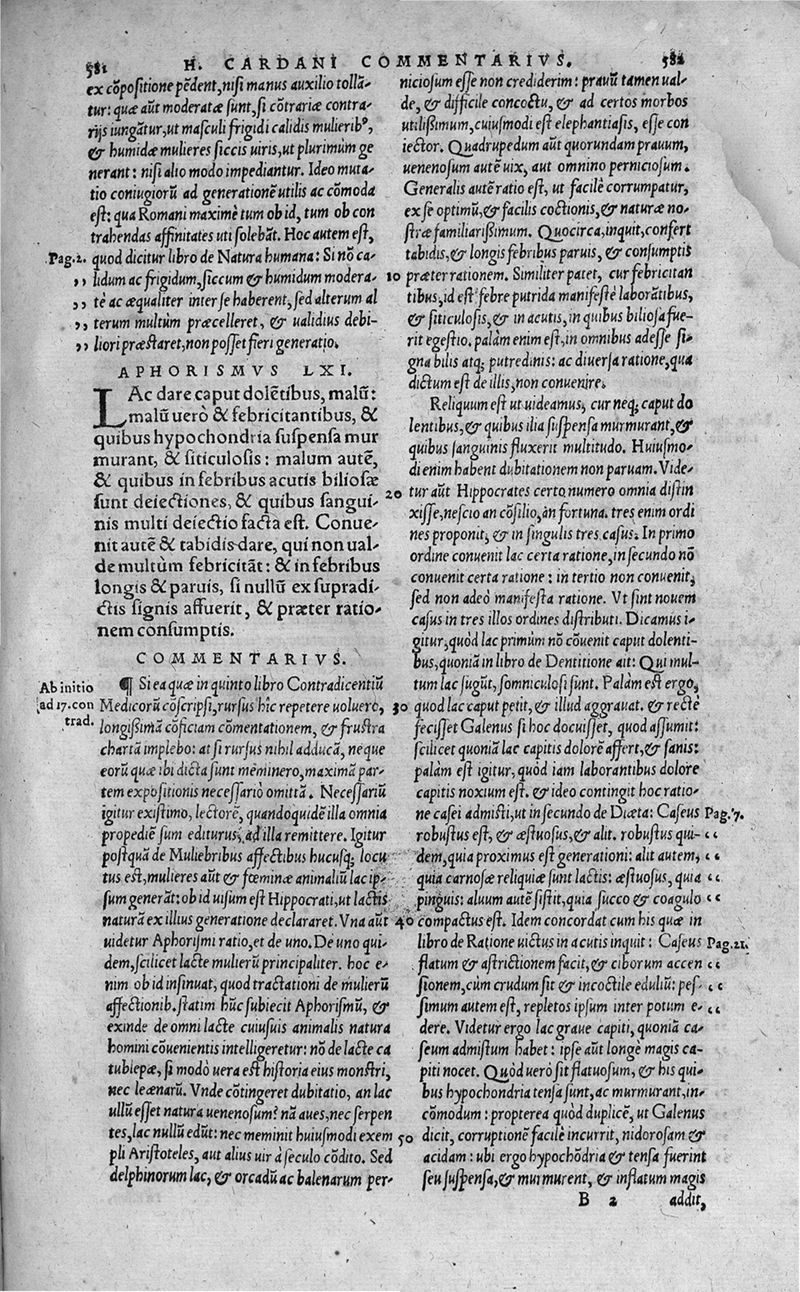 581 H. CARDANI COMMENTARIVS. 582
ex cōpositione pēdent, nisi manus auxilio tollā-
tur: quæ aūt moderatæ sunt, si cōtrariæ contra-
rijs iungātur, ut masculi frigidi calidis mulierib⁹,
& humidæ mulieres siccis uiris, ut plurimum ge
nerant: nisi alio modo impediantur. Ideo muta-
tio coniugiorū ad generationē utilis ac cōmoda
est: qua Romani maximè tum ob id, tum ob con
trahendas affinitates uti solebāt. Hoc autem est,
Pag.2. quod dicitur libro de Natura humana: Si nō ca-
,, lidum ac frigidum, siccum & humidum modera-
,, tè ac æqualiter inter se haberent, sed alterum al
,, terum multùm præcelleret, & ualidius debi-
,, liori præstaret, non posset fieri generatio.
APHORISMVS LXI.
LAc dare caput dolētibus, malū:
malū uerò & febricitantibus, &
quibus hypochondria suspensa mur
murant, & siticulosis: malum autē,
& quibus in febribus acutis biliosæ
sunt deiectiones, & quibus sangui-
nis multi deiectio facta est. Conue-
nit autē & tabidis dare, qui non ual-
de multùm febricitāt: & in febribus
longis & paruis, si nullū ex supradi-
ctis signis affuerit, & præter ratio-
nem consumptis.
COMMENTARIVS.
Ab initio
ad 17. con
trad.
¶ Si ea quæ in quinto libro Contradicentiū
Medicorū cōscripsi, rursus hîc repetere uoluero,
longissimā cōficiam cōmentationem, & frustra
chartā implebo: at si rursus nihil adducā, neque
eorū quæ ibi dicta sunt mēminero, maximā par-
tem expositionis necessariò omittā. Necessariū
igitur existimo, lectorē, quandoquidē illa omnia
propediē sum editurus, ad illa remittere. Igitur
postquā de Muliebribus affectibus hucusq; locu
tus est, mulieres aūt & fœminæ animaliū lac ip-
sum generāt: ob id uisum est Hippocrati, ut lactis
naturā ex illius generatione declararet. Vna aūt
uidetur Aphorismi ratio, et de uno. De uno qui-
dem, scilicet lacte mulierū principaliter. hoc e-
nim ob id insinuat, quod tractationi de mulierū
affectionib. statim hūc subiecit Aphorismū, &
exinde de omni lacte cuiusuis animalis natura
homini cōuenientis intelligeretur: nō de lacte ca
tublepæ, si modò uera est historia eius monstri,
nec leænarū. Vnde cōtingeret dubitatio, an lac
ullū esset natura uenenosum? nā aues, nec serpen
tes, lac nullū edūt: nec meminit huiusmodi exem
pli Aristoteles, aut alius uir à seculo cōdito. Sed
delphinorum lac, & orcadū ac balenarum per-
niciosum esse non crediderim: prauū tamen ual-
de, & difficile concoctu, & ad certos morbos
utilissimum, cuiusmodi est elephantiasis, esse con
iector. Quadrupedum aūt quorundam prauum,
uenenosum autē uix, aut omnino perniciosum.
Generalis autē ratio est, ut facilè corrumpatur,
ex se optimū, & facilis coctionis, & naturæ no-
stræ familiarissimum. Quocirca, inquit, confert
tabidis, & longis febribus paruis, & consumptis
10 præter rationem. Similiter patet, cur febricitan
tibus, id est febre putrida manifestè laborātibus,
& siticulosis, & in acutis, in quibus biliosa fue-
rit egestio. palàm enim est, in omnibus adesse si-
gna bilis atq; putredinis: ac diuersa ratione, qua
dictum est de illis, non conuenire.
Reliquum est ut uideamus, cur neq; caput do
lentibus, & quibus ilia suspensa murmurant, &
quibus sanguinis fluxerit multitudo. Huiusmo-
di enim habent dubitationem non paruam. Vide-
20 tur aūt Hippocrates certo numero omnia distin
xisse, nescio an cōsilio, àn fortuna. tres enim ordi
nes proponit, & in singulis tres casus. In primo
ordine conuenit lac certa ratione, in secundo nō
conuenit certa ratione: in tertio non conuenit,
sed non adeò manifesta ratione. Vt sint nouem
casus in tres illos ordines distributi. Dicamus i-
gitur, quòd lac primùm nō cōuenit caput dolenti-
bus, quoniā in libro de Dentitione ait: Qui mul-
tum lac sugūt, somniculosi sunt. Palàm est ergo,
30 quod lac caput petit, & illud aggrauat. & rectè
fecisset Galenus si hoc docuisset, quod assumit:
scilicet quoniā lac capitis dolorē affert, & sanis:
palàm est igitur, quòd iam laborantibus dolore
capitis noxium est. & ideo contingit hoc ratio-
ne casei admisti, ut in secundo de Diæta: Caseus Pag.7.
robustus est, & æstuosus, & alit. robustus qui- “
dem, quia proximus est generationi: alit autem, “
quia carnosæ reliquiæ sunt lactis: æstuosus, quia “
pinguis: aluum autē sistit, quia succo & coagulo “
40 compactus est. Idem concordat cum his quæ in
libro de Ratione uictus in acutis inquit: Caseus Pag.21.
flatum & astrictionem facit, & ciborum accen “
sionem, cùm crudum sit & incoctile eduliū: pes- “
simum autem est, repletos ipsum inter potum e- “
dere. Videtur ergo lac graue capiti, quoniā ca-
seum admistum habet: ipse aūt longè magis ca-
piti nocet. Quòd uerò sit flatuosum, & his qui-
bus hypochondria tensa sunt, ac murmurant, in-
cōmodum: propterea quòd duplicē, ut Galenus
50 dicit, corruptionē facilè incurrit, nidorosam &
acidam: ubi ergo hypochōdria & tensa fuerint
seu suspensa, & murmurent, & inflatum magis
B 2 addit,